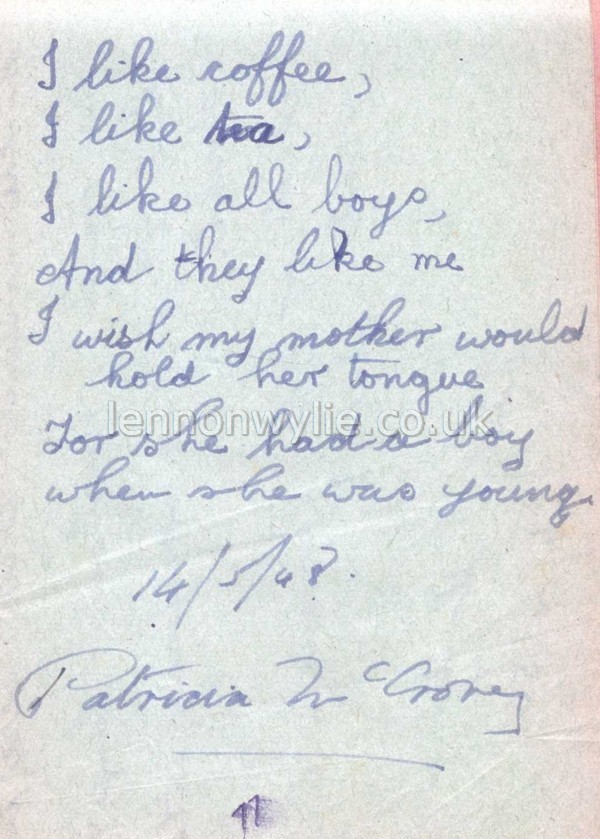 I like coffee,
I like tea,
I like all boys,
And they like me
I wish my mother would
hold her tongue
lennonwylie.co.uk
For she had a boy
when she was young.
14/5/48.
Patricia McCrorey
11